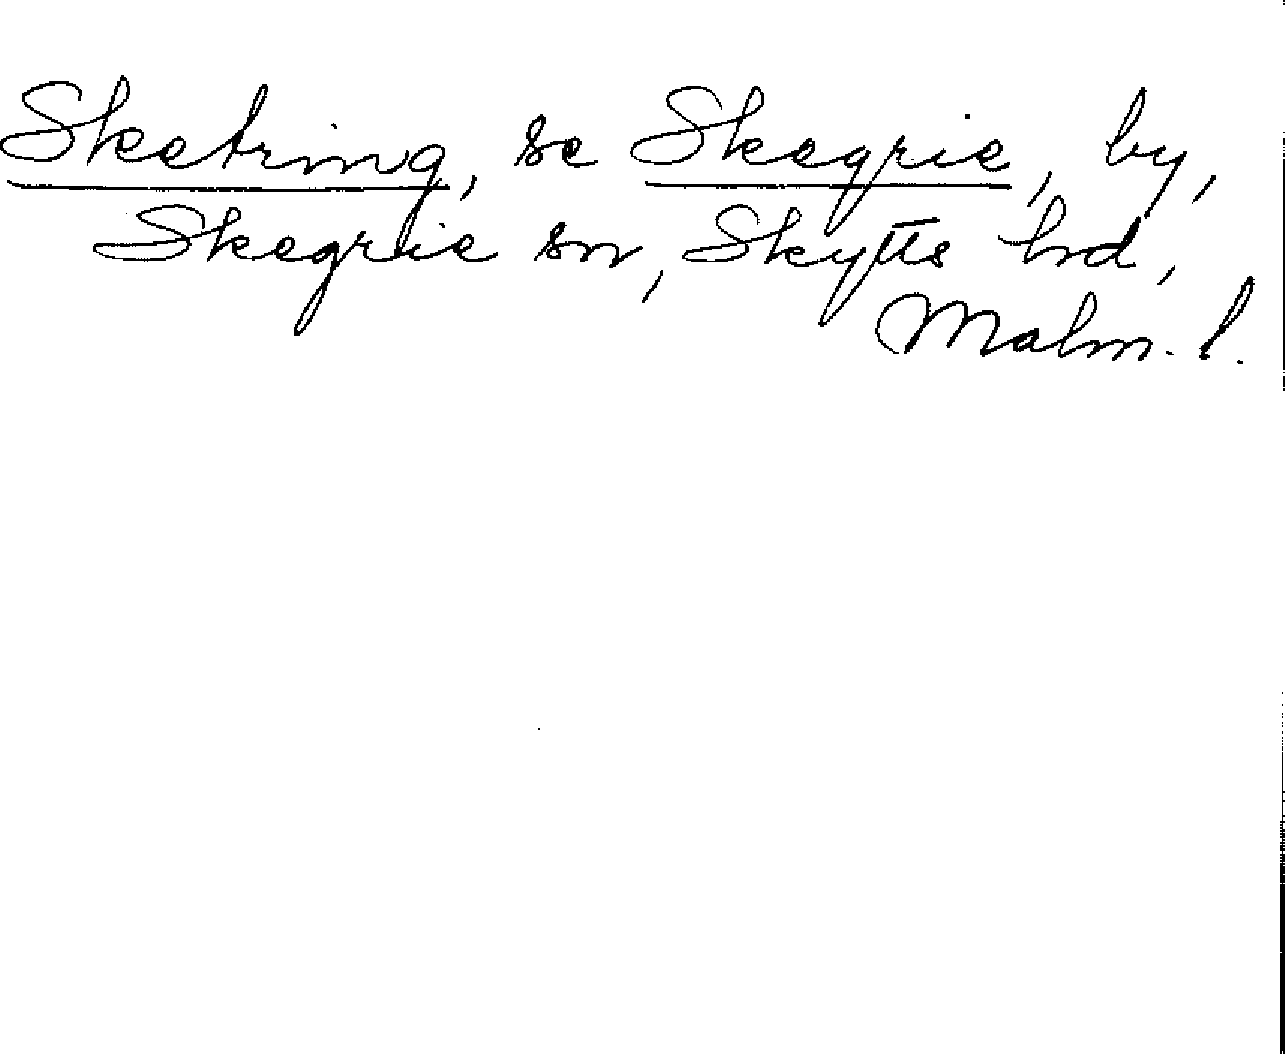 Sketring, se Skegrie, by,
Skegrie sn, Skytts hd,
Malm. l.